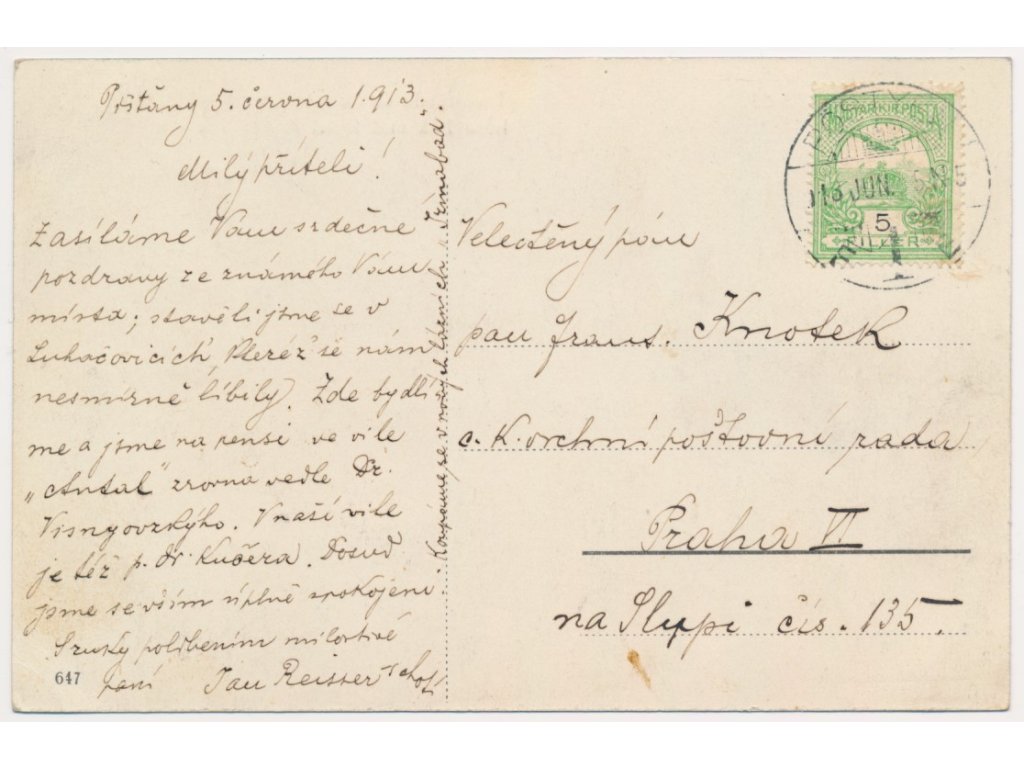 Píšťany 5. června 1913.
Milý příteli!
Zasíláme Vám srdečné
pozdravy ze známého Vám
místa; stavěli jsme se v
Luhačovicích, kteréž se nám
nesmírně líbily. Zde bydlí-
me a jsme na pensi ve vile
„Antal“ zrovna vedle Dr.
Visnyovzkýho. V naší vile
je též p. dr Kučera. Dosud
jsme se vším úplně spokojeni.
S ruky políbením milostivé
paní Jan Reisser s chotí
Koupáme se v nových lázních „Irmabad“.
647
Velectěný pán
pan Frant. Knotek
c. k. vrchní poštovní rada
Praha VI
na Slupi čís. 135.
MAGYAR KIR. POSTA
913 JUN. 5
5
FILLER